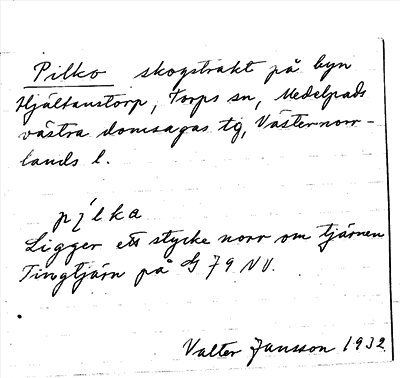 Pilko skogstrakt på byn
Hjältanstorp, Torps sn, Medelpads
västra domsagas tg, Västernorr-
lands l.
pįlka
Ligger ett stycke norr om tjärnen
Tingtjärn på G 79 NV.
Valter Jansson 1932